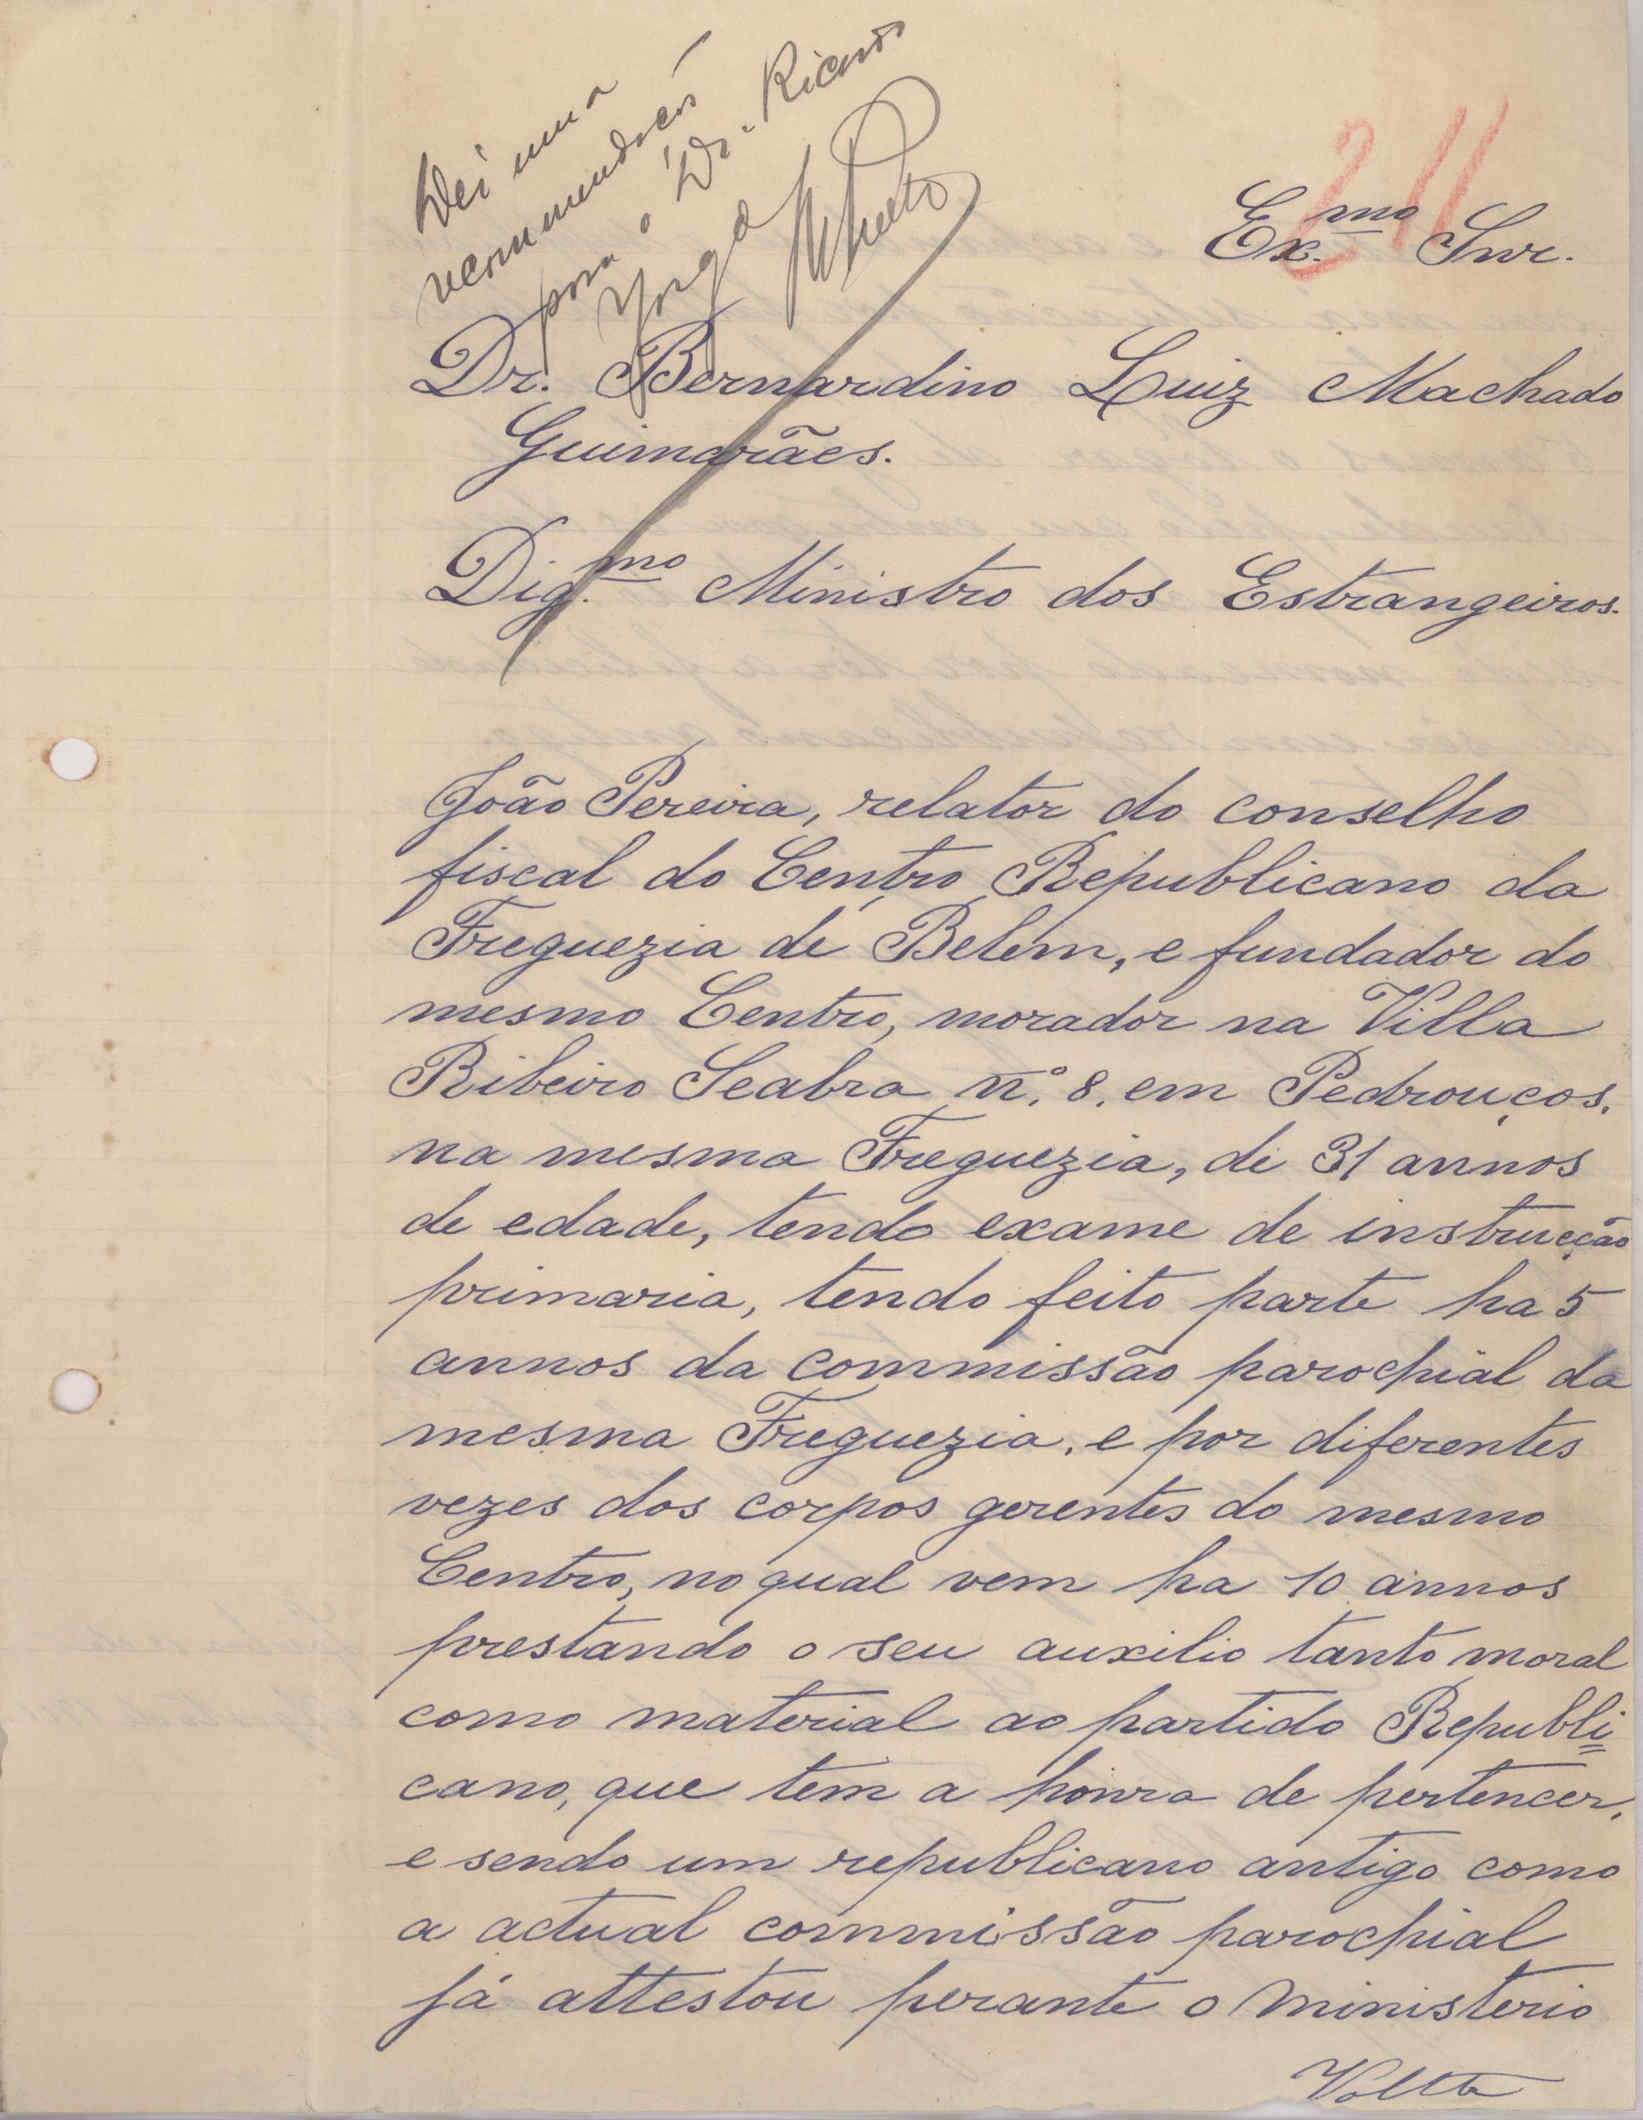 Dei uma
recommendação
para o Dr. Ricardo
Jorge
211
Ex.mo Snr.
Dr. Bernardino Luiz Machado
Guimarães.
Dig.mo Ministro dos Estrangeiros.
João Pereira, relator do conselho
fiscal do Centro Republicano da
Freguezia de Belem, e fundador do
mesmo Centro, morador na Villa
Ribeiro Seabra n.º 8. em Pedrouços,
na mesma Freguezia, de 31 annos
de edade, tendo exame de instrucção
primaria, tendo feito parte ha 5
annos da commissão parochial da
mesma Freguezia, e por diferentes
vezes dos corpos gerentes do mesmo
Centro, no qual vem ha 10 annos
prestando o seu auxilio tanto moral
como material ao partido Republi=
cano, que tem a honra de pertencer,
e sendo um republicano antigo como
a actual commissão parochial
já attestou perante o ministerio
Volte